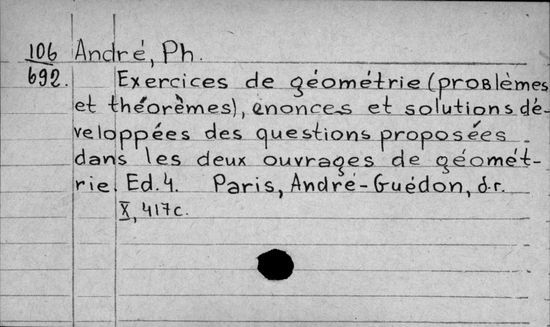 106 André, Ph.
692. Exercices de géométrie (problèmes
et théorèmes), énonces et solutions dé-
veloppées des questions proposées
dans les deux ouvrages de géomét-
rie. Ed. 4. Paris, André-Guédon, s.r.
X, 417c.